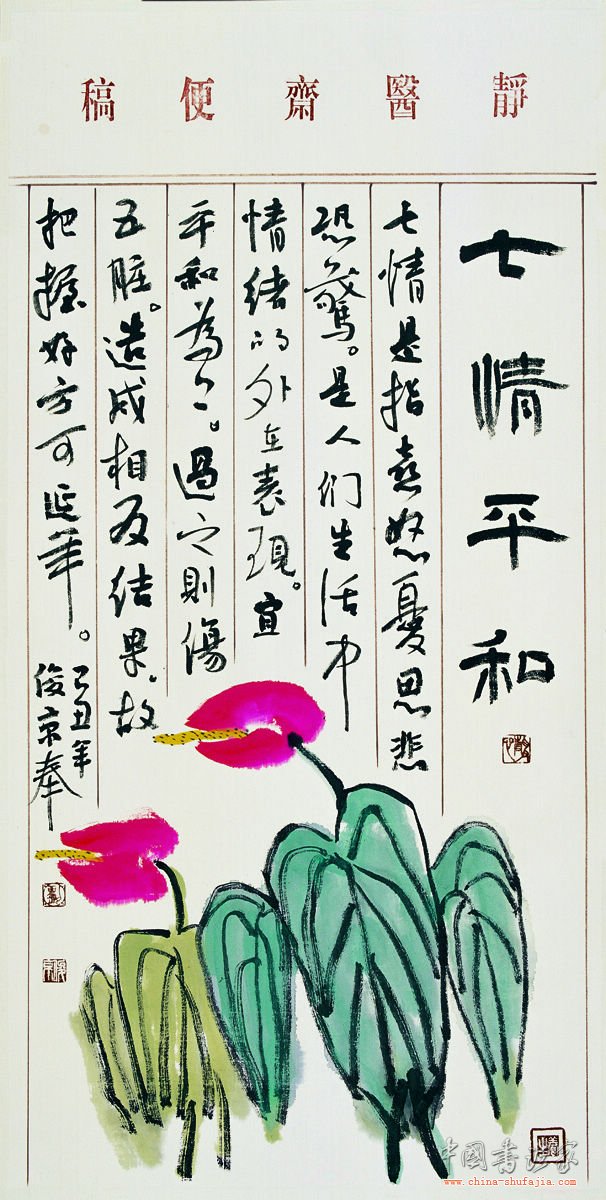 靜醫齋便稿
七情平和
七情是指喜怒憂思悲
恐驚。是人们生活中
情绪的外在表現。宜
平和為上。過之則傷
五脏。造成相反结果。故
把握好方可延年。
己丑年
俊京奉
中國書法家
www.china-shufajia.com